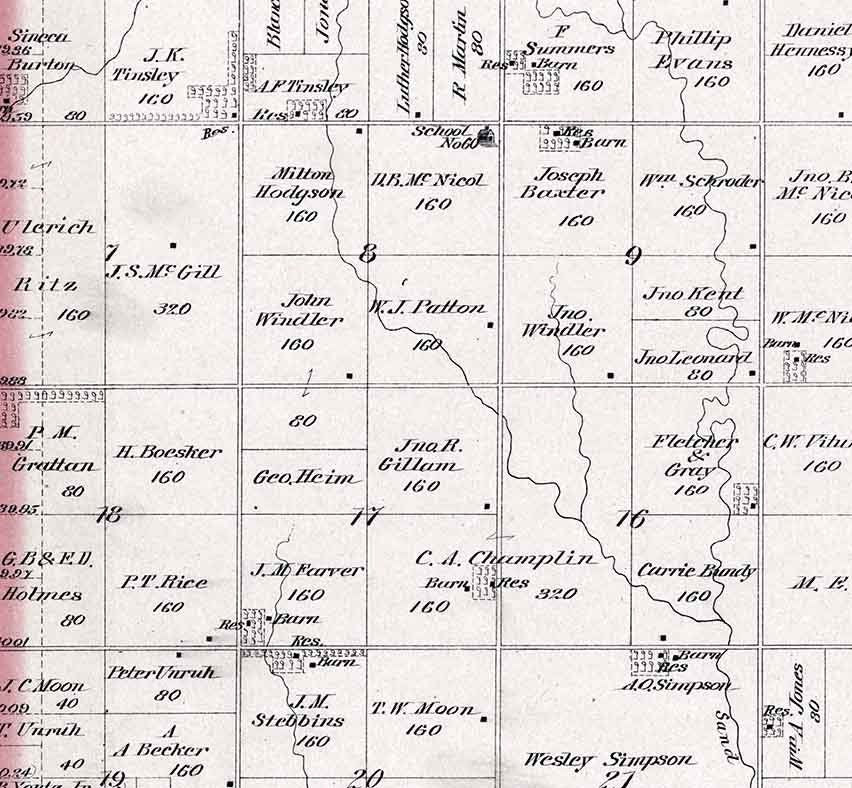 Sineca
Burton
80
J. K.
Tinsley
160
Res.
A. F. Tinsley
Res
80
Luther Hodgson
80
R Martin
80
F
Summers
Res
Barn
160
Phillip
Evans
160
Daniel
Hennessy
160
Ulerich
Ritz
160
7
J. S. McGill
320
Milton
Hodgson
160
School
No 60
D. B. McNicol
160
8
John
Windler
160
W. J. Patton
160
Res
Barn
Joseph
Baxter
160
Wm Schroder
160
9
Jno.
Windler
160
Jno Kent
80
Jno Leonard
80
Jno. B.
McNic
160
W. McNic
160
Barn
Res
P. M.
Grattan
80
H. Boesker
160
18
80
Geo. Heim
Jno R.
Gillam
160
17
Fletcher
&
Gray
160
16
C. W. Vitu
160
39.95
G. B & E. D.
Holmes
80
P. T. Rice
160
J. M Farver
160
Res
Barn
C. A. Champlin
Barn
Res
160
320
Carrie Bundy
160
M. E.
J. C Moon
40
T. Unruh
40
Peter Unruh
80
A
A Becker
160
19
Res.
Barn
J. M.
Stebbins
160
T. W. Moon
160
20
Barn
Res
A. O. Simpson
Wesley Simpson
21
Sand
Res
Wm Jones
80